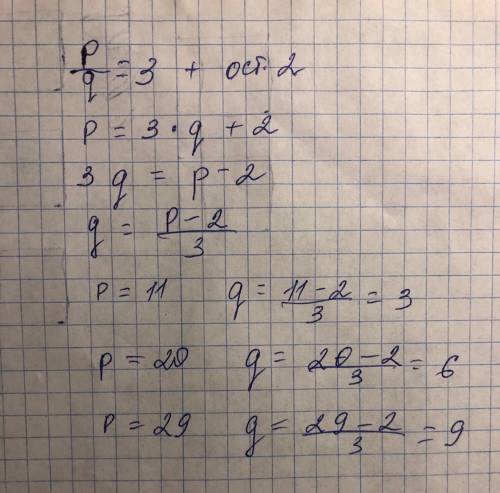 p/q = 3 + ост. 2
p = 3 · q + 2
3 q = p - 2
q = (p - 2)/3
p = 11 q = (11 - 2)/3 = 3
p = 20 q = (20 - 2)/3 = 6
p = 29 q = (29 - 2)/3 = 9